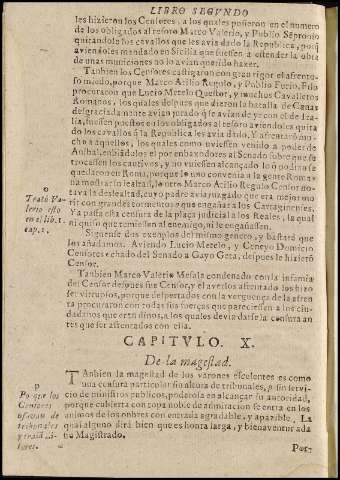 LIBRO SEGVNDO
les hizieron los Censores, a los quales pusieron en el numero
de los obligados al tesoro Marco Valerio, y Publio Sēpronio
quitandole los cavallos que les avia dado la Republica, porq̄
aviendoles mandado en Sicilia que fuessen a ofender la obra
de unas municiones no lo avian querido hazer.
Tanbien los Censores castigaron con gran rigor el afrento-
so miedo, porque Marco Acilio Regulo, y Publio Furio, Filo
procuraron que Lucio Metelo Questor, y muchos Cavalleros
Romanos, los quales despues que dieron la batalla de Canas
desgraciadamente avian jurado q̄ se avian de yr con el de Ita-
lia, fuessen puestos en los obligados al tesoro aviendoles quita
do los cavallos q̄ la Republica les avia dado. Y afrentarō mu-
cho a aquellos, los quales como uviessen venido a poder de
Anibal, enbiādolos el por enbaxadores al Senado sobre que se
trocassen los cautivos, y no uviessen alcançado lo q̄ pediā se
quedaron en Roma, porque
na mostrar lo lealtad,
tava la deslealtad, cuyo padre avia juzgado que era mejor mo
rir con grandes tormentos que engañar a los Cartaginenses.
Ya passa esta censura de la plaça judicial a los Reales, la qual
ni quiso que temiessen al enemigo, ni le engañassen.
Siguense dos exemplos del mismo genero, y bastarà que
los añadamos. Aviendo Lucio Metelo, y Cneyo Domicio
Censores echado del Senado a Gayo Geta, despues le hizierō
Censor.
Tanbien Marco Valerio Mesala condenado con la infamia
del Censor despues fue Censor, y el averlos afrentado los hizo
ser virtuosos, porque despertados con la verguença de la afren
ta procuraron con todas sus fuerças que pareciessen a los ciu-
dadanos que eran dinos, a los quales devia darse la censura an
tes que ser afrentados con ella.
o
Trató Va-
lerio esto
en el lib. 1.
cap. 1.
CAPITVLO. X.
De la magestad.
TAnbien la magestad de los varones escelentes es como
una censura particular sin altura de tribunales, y sin servi-
cio de ministros publicos, poderosa en alcançar su autoridad,
porque cubierta con capa noble de admiracion se entra en los
animos de los onbres con entrada agradable, y apazible. La
qual alguno dirà bien que es honra larga, y bienaventurada
sin Magistrado.
p
Porque los
Censores
usavan de
tribunales
Por-